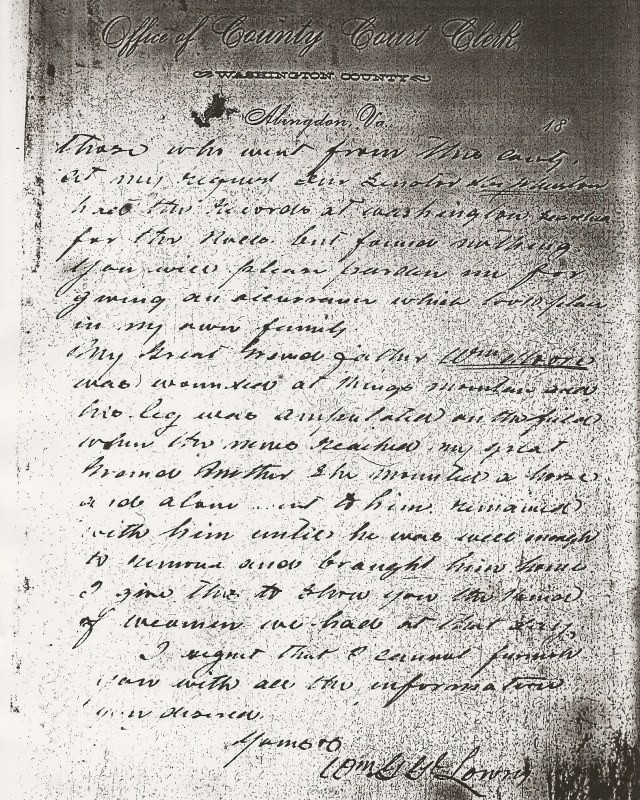 Office of County Court Clerk,
WASHINGTON COUNTY
Abingdon, Va. 18
those who went from this county.
at my request our Senator
had the records at Washington searched
for the Rolls. but found nothing.
You will please pardon me for
giving an occurrance which took place
in my own family.
My Great Grand father Wm Moore
was wounded at Kings mountain and
his leg was amputated on the field
when the news reached my great
Grand Mother She mounted a horse
and alone to him remained
with him until he was well enough
to remove and braught him home
I give this to show you the kind
of weomen we had at that day,
I regret that I cannot furnish
you with all the information
you desired.
Yours &c
Wm G G Lowry